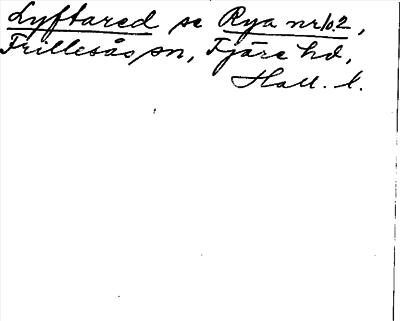 Lyftared se Rya nr 1o.2,
Frillesås sn, Fjäre hd,
Hall. l.